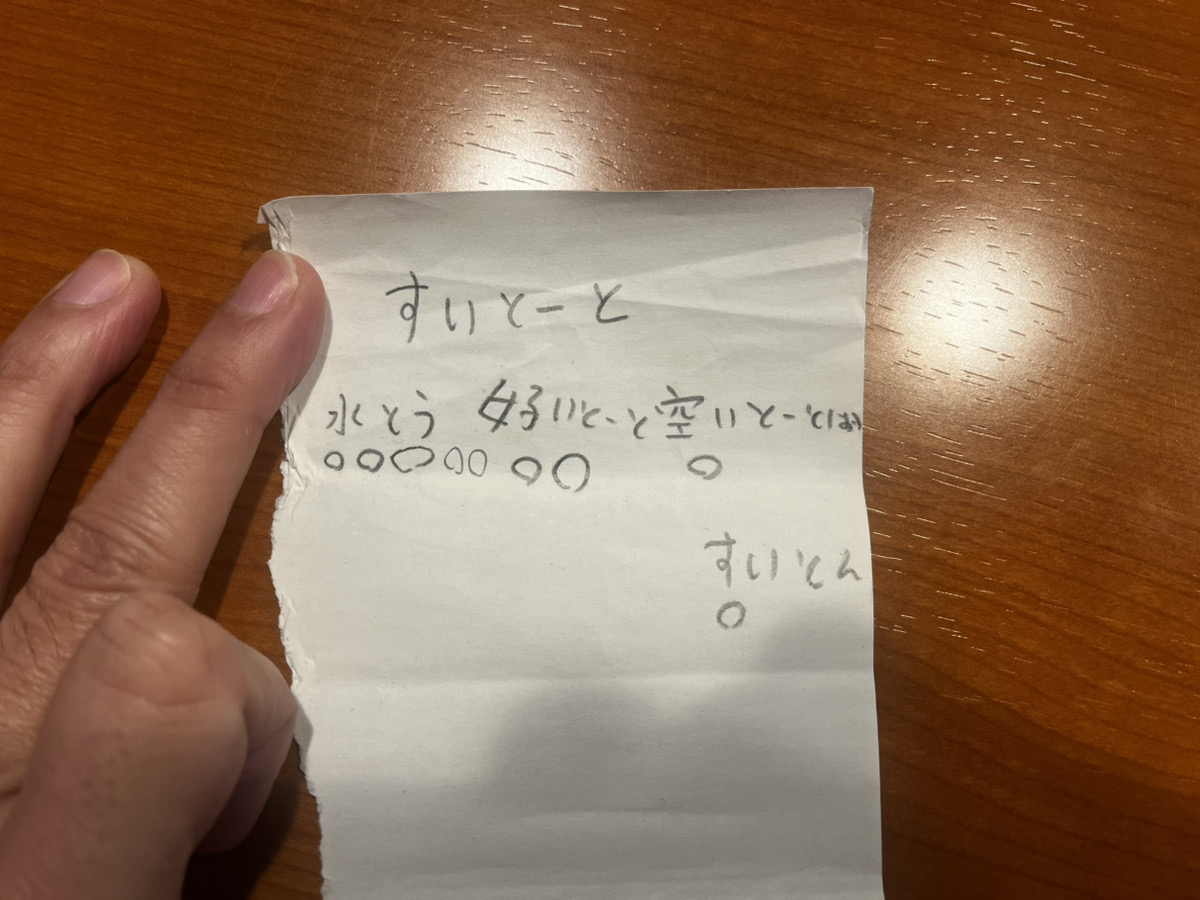 すいとーと
水とう 好いとーと 空いとーとばい
○○○○○ ○○ ○
すいとん
○